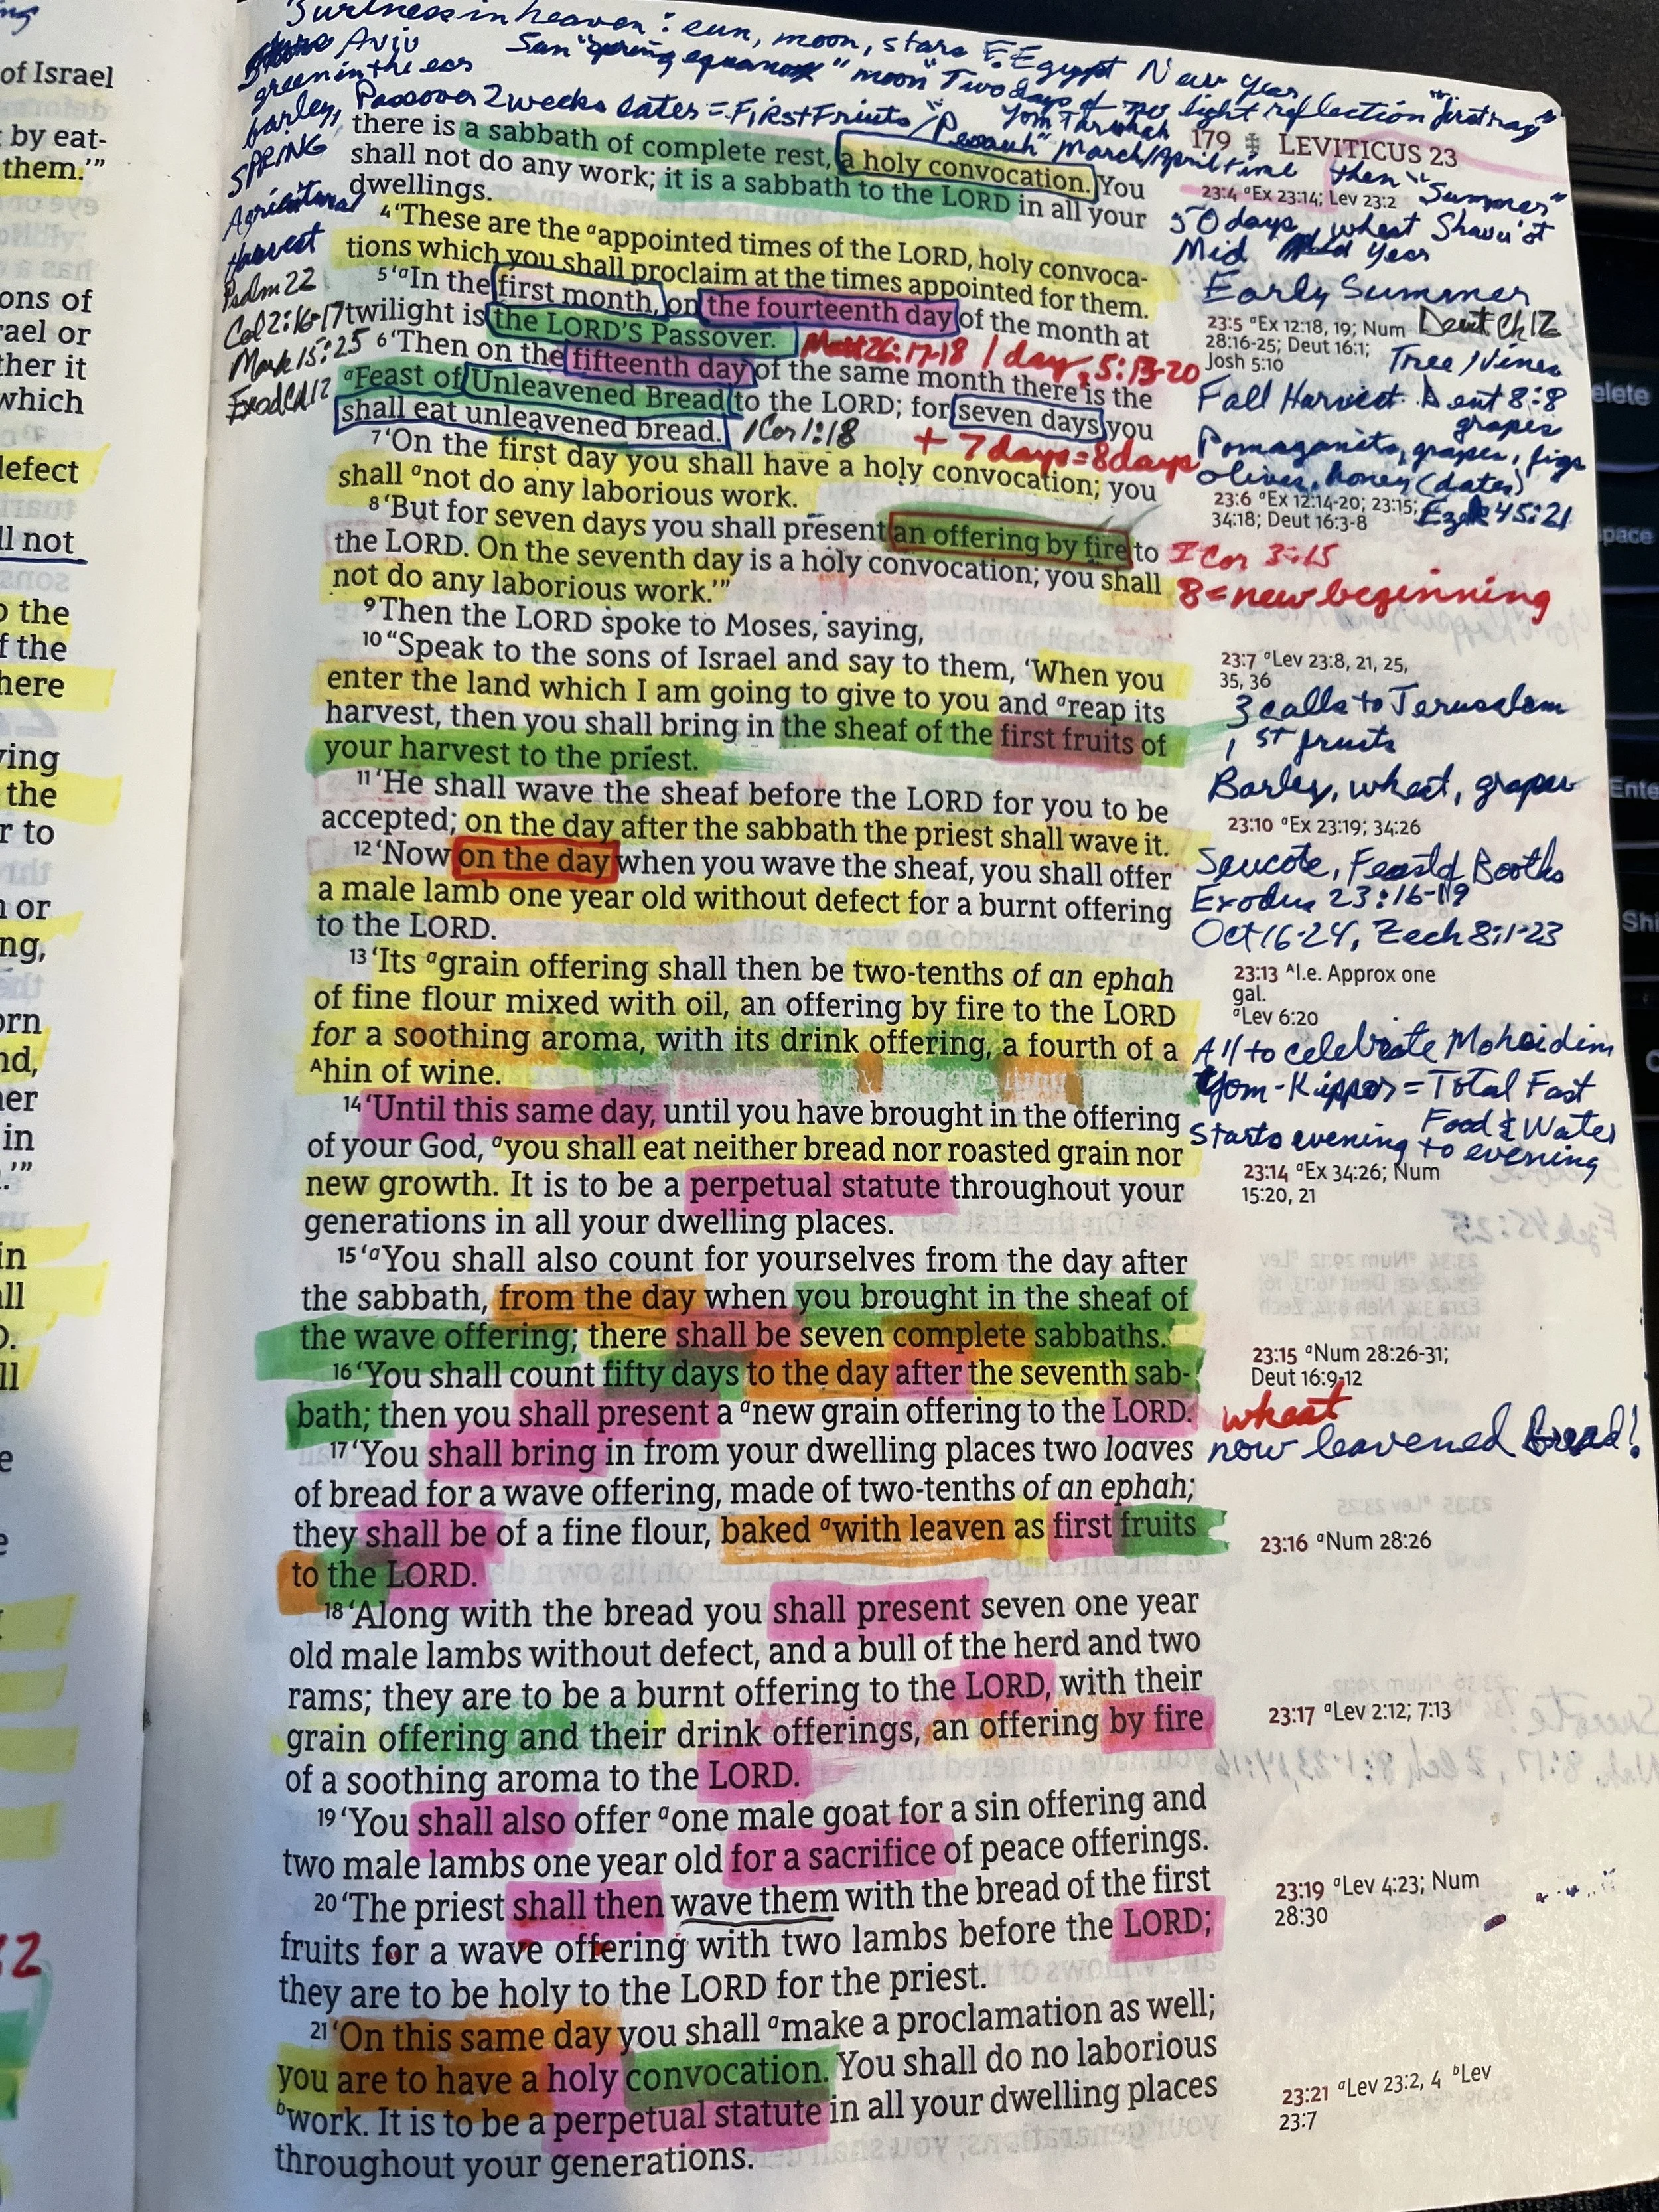 in heaven: sun, moon, stars Egypt New Year,
Aviv Sun "spring equanox" "moon" Two days of no light reflection
green in the ears
barley, Passover 2 weeks later = First Fruits
SPRING
March/April time then "Summer"
Agricultural
Harvest
Psalm 22
Col 2:16-17
Mark 15:25
Exod Ch 12
179 LEVITICUS 23
there is a sabbath of complete rest, a holy convocation. You
shall not do any work; it is a sabbath to the LORD in all your
dwellings.
4 ‘These are the a appointed times of the LORD, holy convoca-
tions which you shall proclaim at the times appointed for them.
5 ‘a In the first month, on the fourteenth day of the month at
twilight is the LORD’S Passover.
Matt 26:17-18 / 1 day, 5:13-20
6 ‘Then on the fifteenth day of the same month there is the
a Feast of Unleavened Bread to the LORD; for seven days you
shall eat unleavened bread. 1 Cor 1:18
+ 7 days = 8 days
7 ‘On the first day you shall have a holy convocation; you
shall a not do any laborious work.
8 ‘But for seven days you shall present an offering by fire to
the LORD. On the seventh day is a holy convocation; you shall
not do any laborious work.’”
9 Then the LORD spoke to Moses, saying,
10 “Speak to the sons of Israel and say to them, ‘When you
enter the land which I am going to give to you and a reap its
harvest, then you shall bring in the sheaf of the first fruits of
your harvest to the priest.
11 ‘He shall wave the sheaf before the LORD for you to be
accepted; on the day after the sabbath the priest shall wave it.
12 ‘Now on the day when you wave the sheaf, you shall offer
a male lamb one year old without defect for a burnt offering
to the LORD.
13 ‘Its a grain offering shall then be two-tenths of an ephah
of fine flour mixed with oil, an offering by fire to the LORD
for a soothing aroma, with its drink offering, a fourth of a
A hin of wine.
14 ‘Until this same day, until you have brought in the offering
of your God, a you shall eat neither bread nor roasted grain nor
new growth. It is to be a perpetual statute throughout your
generations in all your dwelling places.
15 ‘a You shall also count for yourselves from the day after
the sabbath, from the day when you brought in the sheaf of
the wave offering; there shall be seven complete sabbaths.
16 ‘You shall count fifty days to the day after the seventh sab-
bath; then you shall present a a new grain offering to the LORD.
17 ‘You shall bring in from your dwelling places two loaves
of bread for a wave offering, made of two-tenths of an ephah;
they shall be of a fine flour, baked a with leaven as first fruits
to the LORD.
18 ‘Along with the bread you shall present seven one year
old male lambs without defect, and a bull of the herd and two
rams; they are to be a burnt offering to the LORD, with their
grain offering and their drink offerings, an offering by fire
of a soothing aroma to the LORD.
19 ‘You shall also offer a one male goat for a sin offering and
two male lambs one year old for a sacrifice of peace offerings.
20 ‘The priest shall then wave them with the bread of the first
fruits for a wave offering with two lambs before the LORD;
they are to be holy to the LORD for the priest.
21 ‘On this same day you shall a make a proclamation as well;
you are to have a holy convocation. You shall do no laborious
b work. It is to be a perpetual statute in all your dwelling places
throughout your generations.
23:4 a Ex 23:14; Lev 23:2
50 days, wheat Shavu'ot
Mid Year
Early Summer
23:5 a Ex 12:18, 19; Num Deut Ch 12
28:16-25; Deut 16:1;
Josh 5:10
Tree/Vines
Fall Harvest Deut 8:8
grapes
Pomaganits, grapes, figs
olives, honey (dates)
23:6 a Ex 12:14-20; 23:15;
34:18; Deut 16:3-8
Ezek 45:21
I Cor 3:15
8 = new beginning
23:7 a Lev 23:8, 21, 25,
35, 36
3 calls to Jerusalem
1st fruits
Barley, wheat, grapes
23:10 a Ex 23:19; 34:26
Succote, Feast of Booths
Exodus 23:16-19
Oct 16-24, Zech 8:1-23
23:13 A I.e. Approx one
gal.
a Lev 6:20
All to celebrate Moheidim
Yom-Kipper = Total Fast
Food & Water
Starts evening to evening
23:14 a Ex 34:26; Num
15:20, 21
23:15 a Num 28:26-31;
Deut 16:9-12
wheat
now leavened Bread!
23:16 a Num 28:26
23:17 a Lev 2:12; 7:13
23:19 a Lev 4:23; Num
28:30
23:21 a Lev 23:2, 4 b Lev
23:7
of Israel
by eat-
them.’”
ons of
rael or
ther it
which
defect
ll not
o the
f the
here
ving
the
r to
n or
ng,
orn
nd,
ner
in
elete
space
Ente
Shi